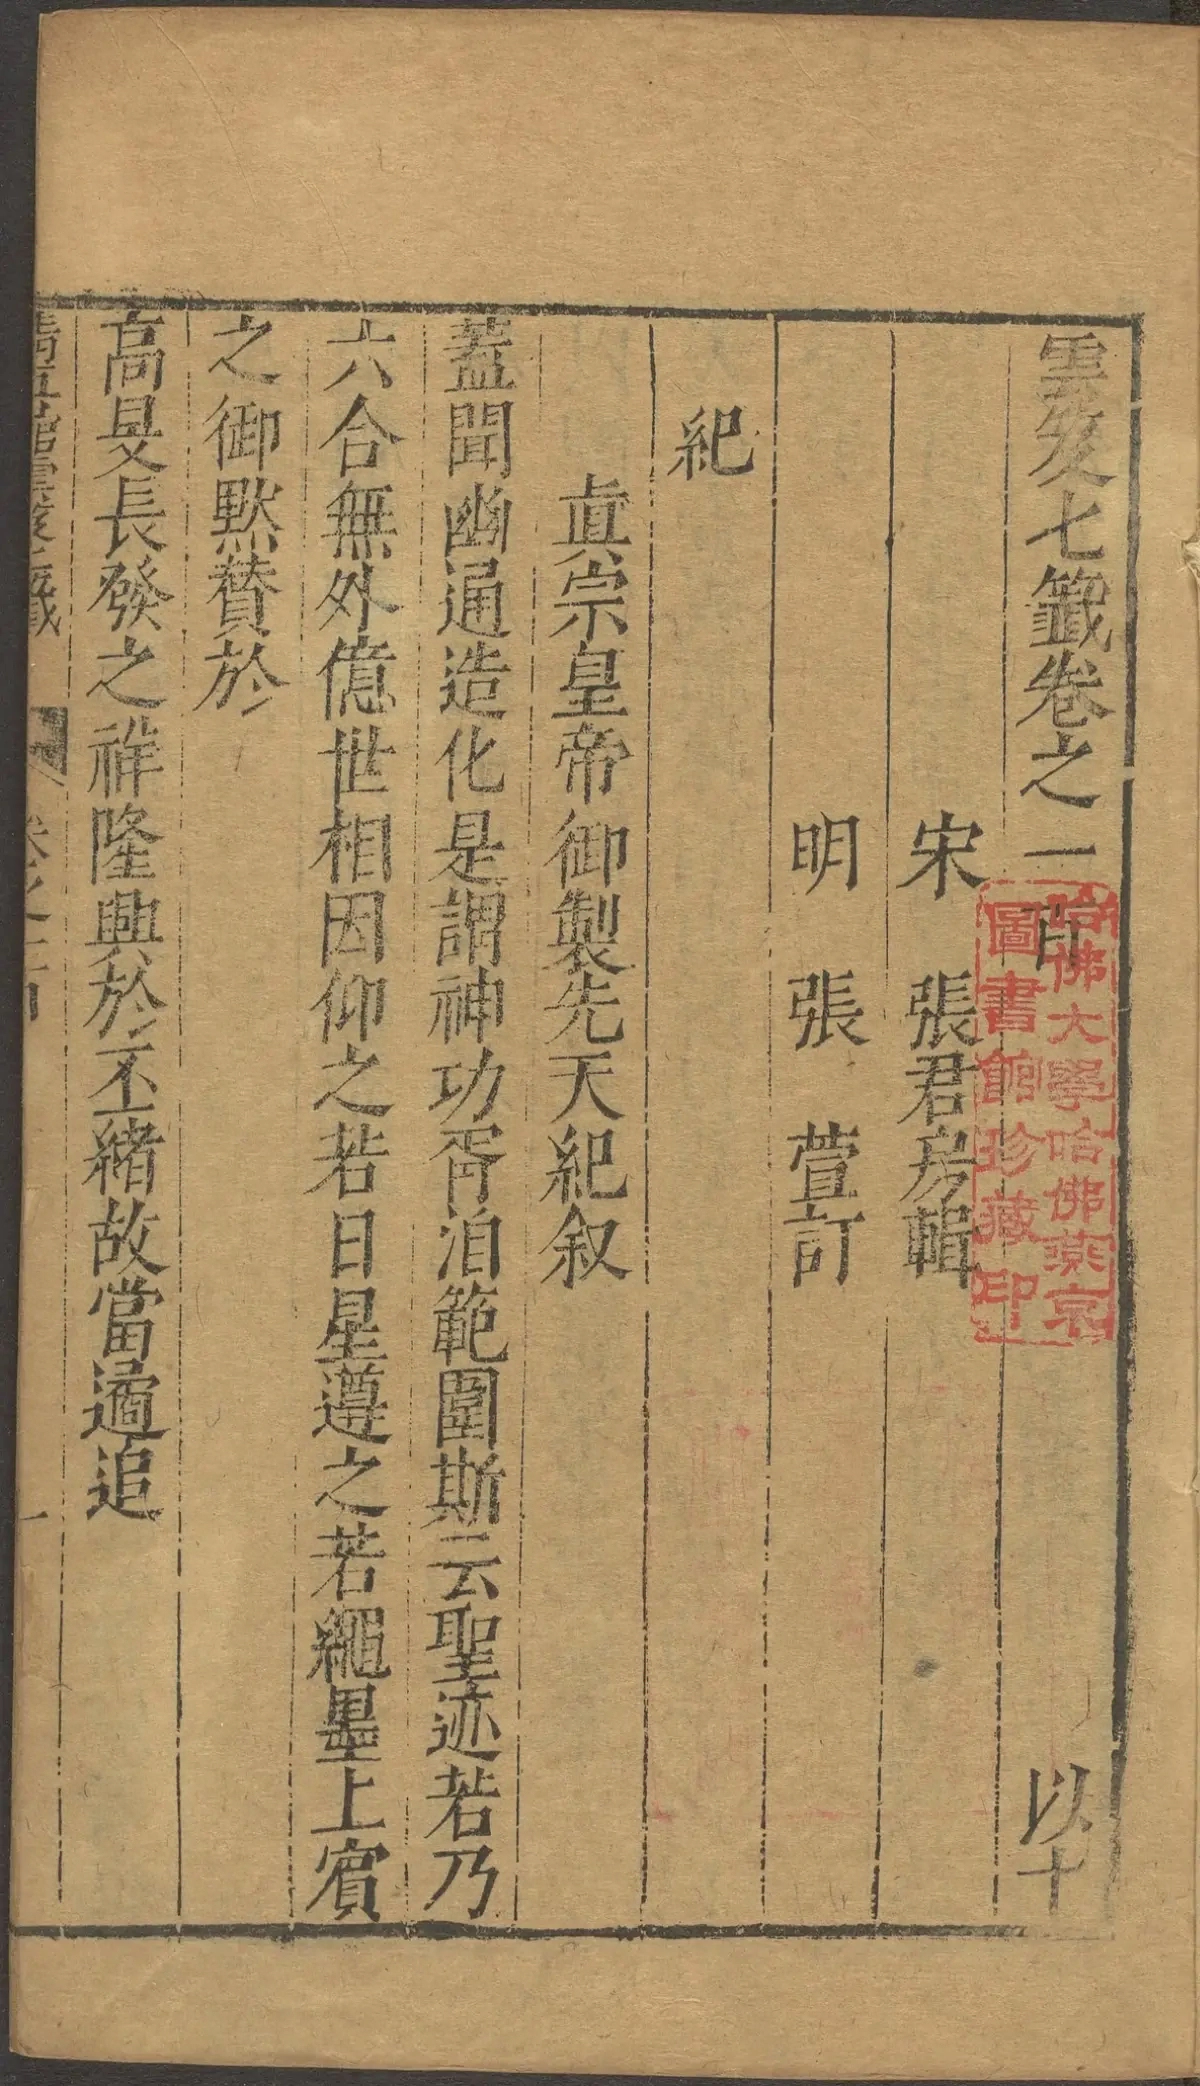 雲笈七籤卷之一百 以十
宋 張君房輯
明 張 萱訂
紀
眞宗皇帝御製先天紀叙
蓋聞幽通造化是謂神功胥洎範圍斯云聖迹若乃
六合無外億世相因仰之若日星遵之若繩墨上賓
之御默贊於
高旻長發之祥隆興於丕緒故當遹追
卷之一百 一
哈佛大學哈佛燕京
圖書館珍藏印